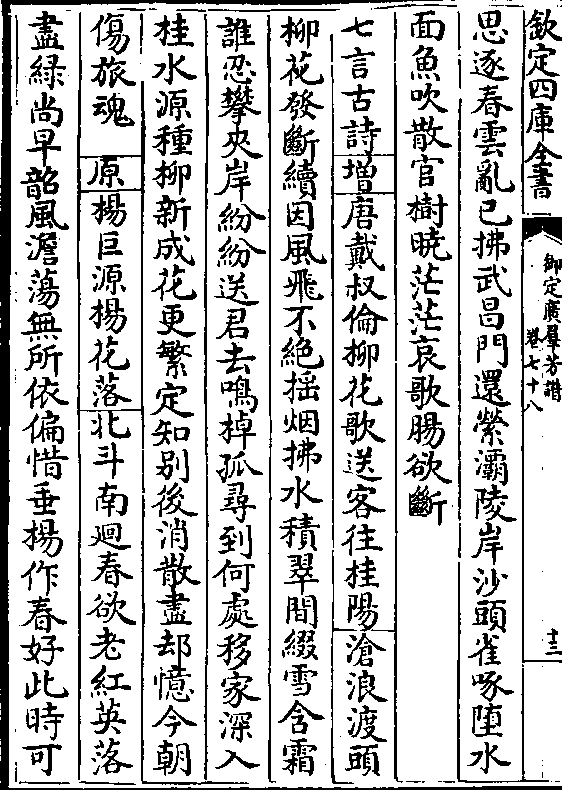 欽定四庫全書
御定廣羣芳譜
卷七十八
十三
思逐春雲亂已拂武昌門還縈灞陵岸沙頭雀啄墮水
面魚吹散官樹曉茫茫哀歌腸欲斷
七言古詩增唐戴叔倫柳花歌送客往桂陽滄浪渡頭
柳花發斷續因風飛不絶揺烟拂水積翠間綴雪含霜
誰忍攀夾岸紛紛送君去鳴棹孤尋到何處移家深入
桂水源種柳新成花更繁定知别後消散盡却憶今朝
傷旅魂 原楊巨源楊花落北斗南廻春欲老紅英落
盡緑尚早韶風澹蕩無所依偏惜垂楊作春好此時可